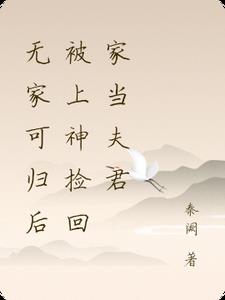 无家可归后
被上神捡回
家当夫君
秦阙 著